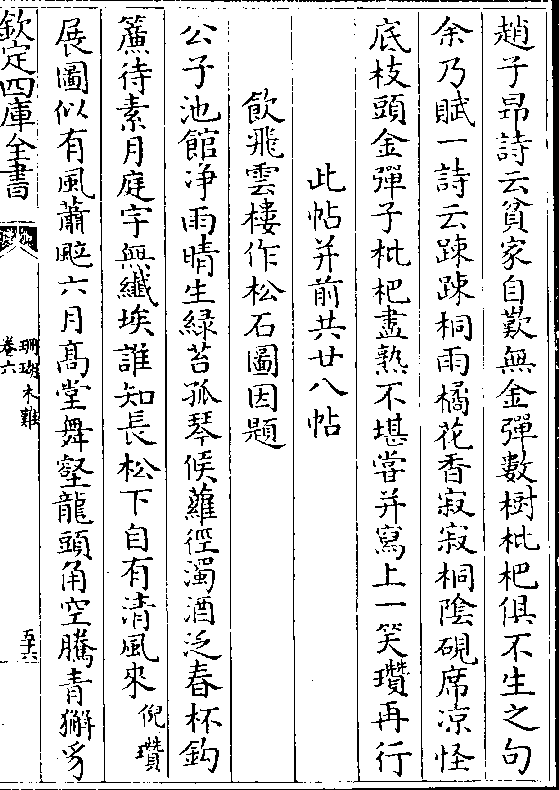 趙子昻詩云貧家自歎無金彈數樹枇杷俱不生之句
余乃賦一詩云踈踈桐雨橘花香寂寂桐隂硯席凉怪
底枝頭金彈子枇杷盡熟不堪嘗并寫上一笑瓚再行
此帖并前共廿八帖
飲飛雲樓作松石圖因題
公子池館净雨晴生緑苔孤琴候蘿徑濁酒泛春杯鈎
簾待素月庭宇無纖埃誰知長松下自有清風來 倪瓚
展圖似有風蕭颸六月髙堂舞壑龍頭角空騰青獬豸
欽定四庫全書
珊瑚木難
卷六
五十六